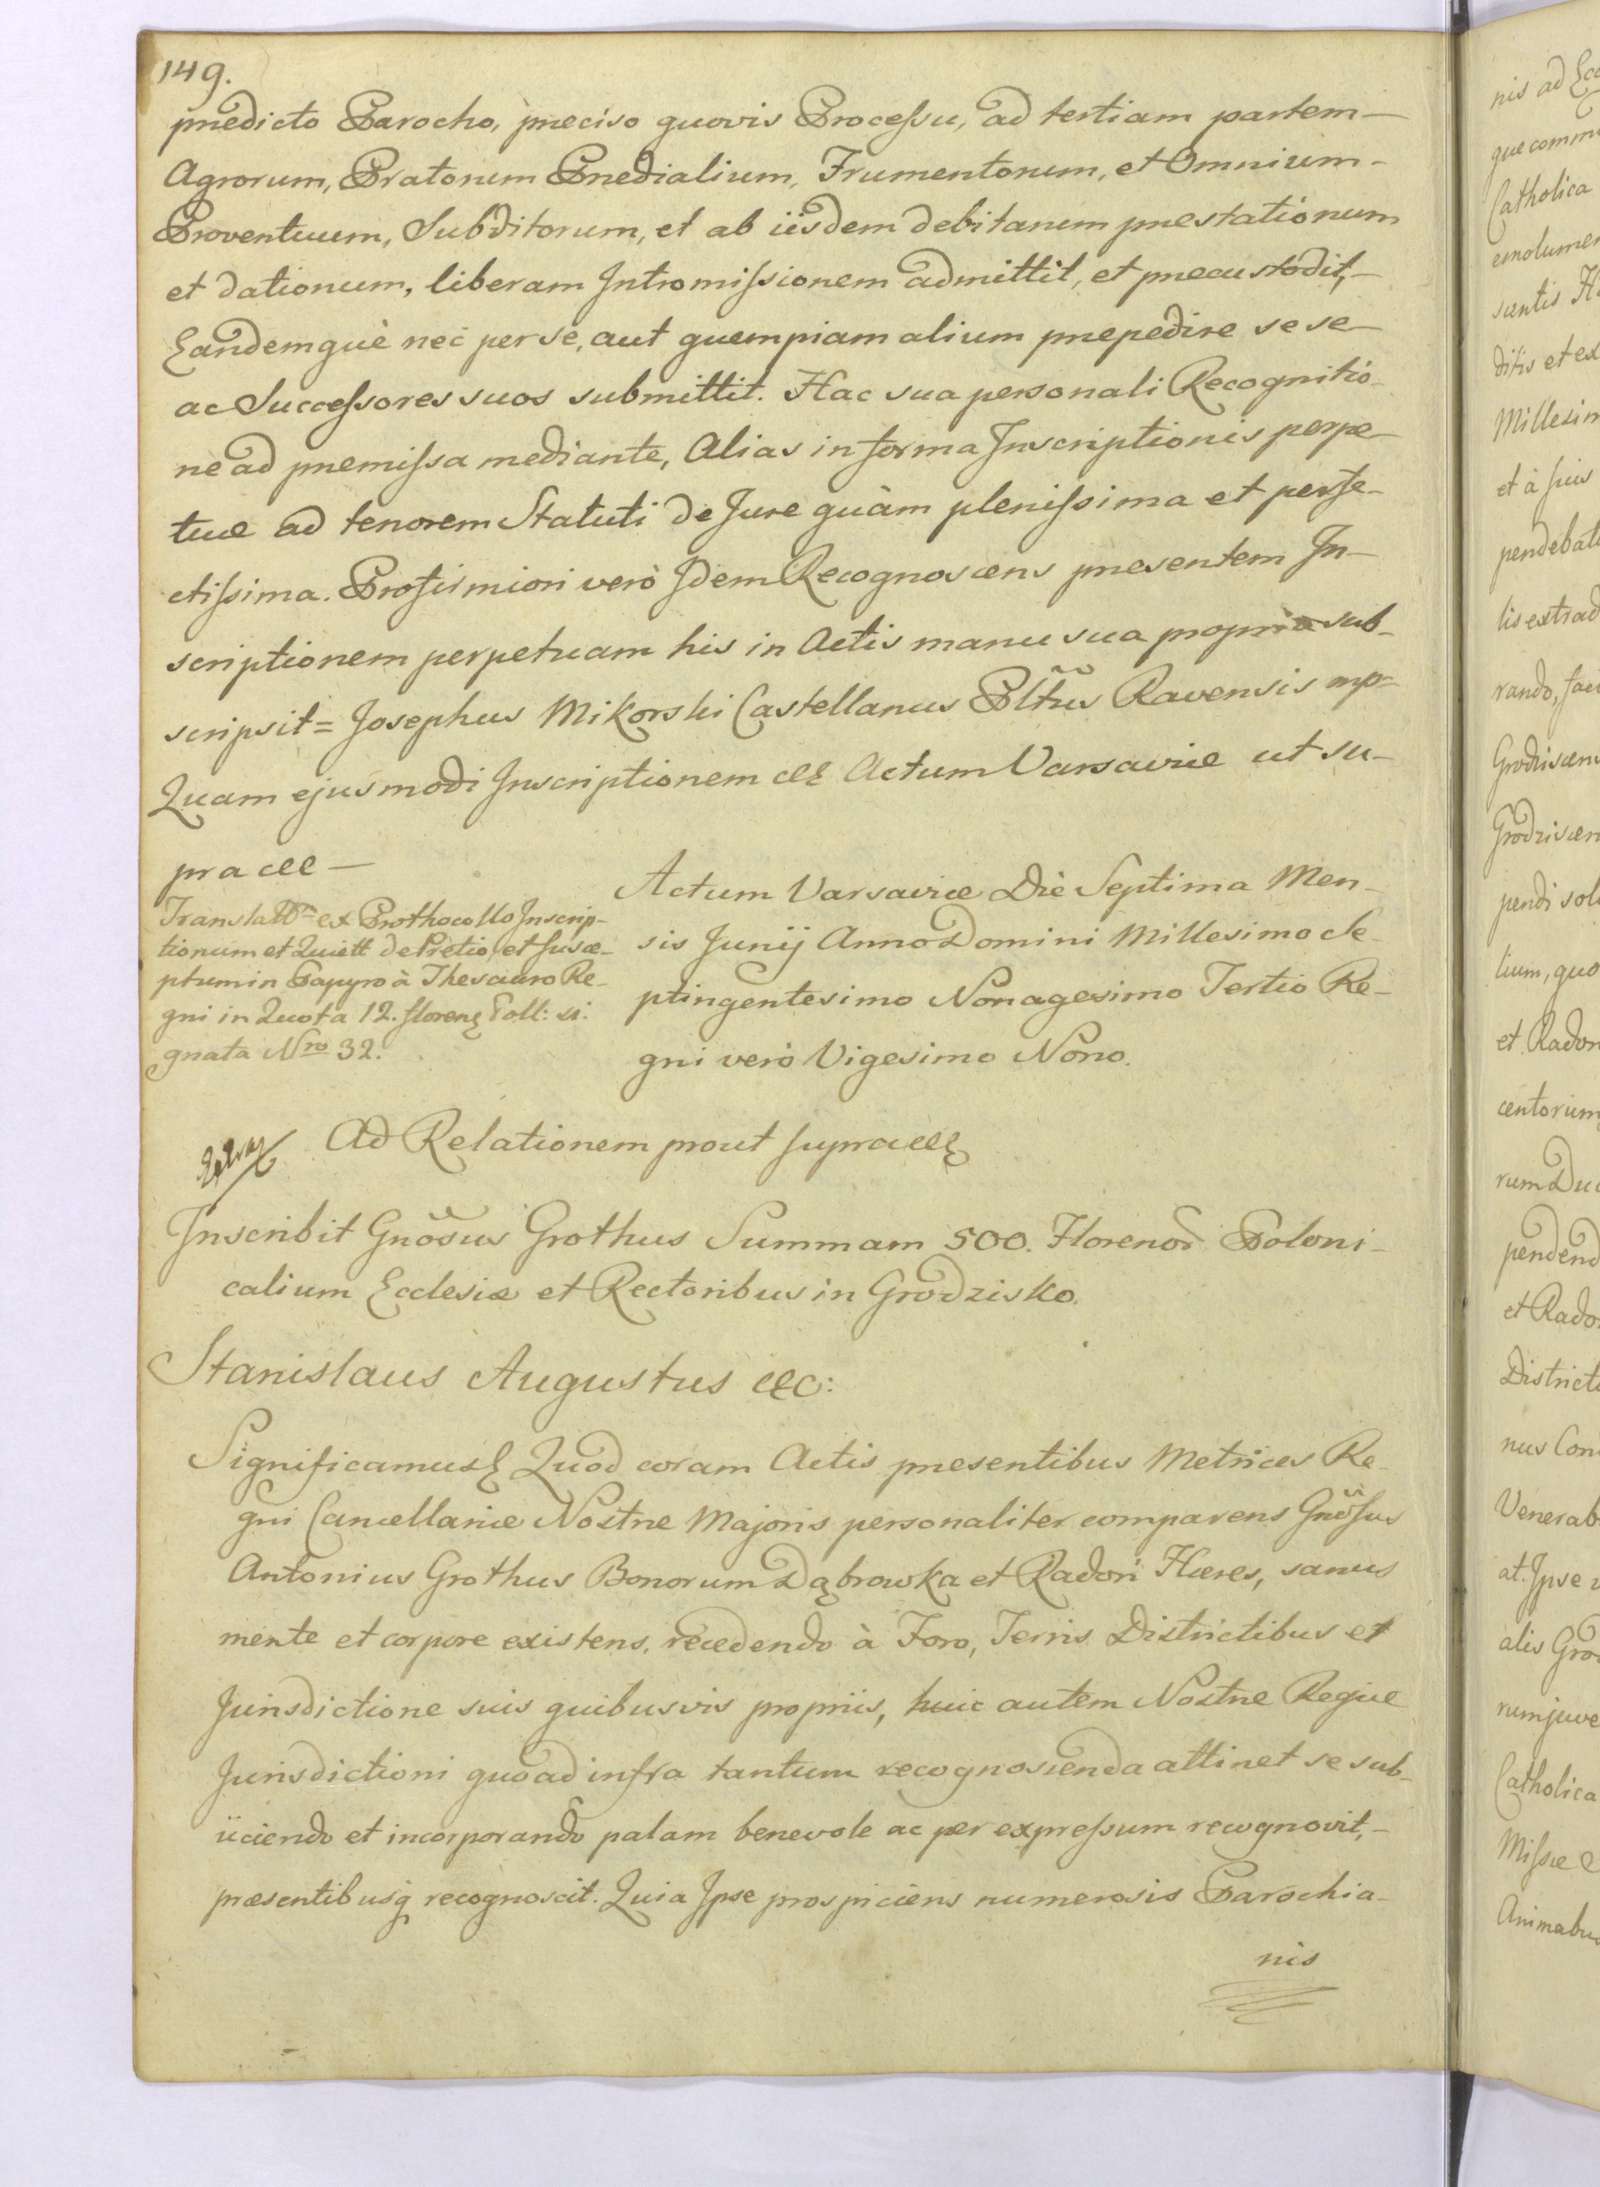 149.
prædicto Parocho, præciso quovis Processu, ad tertiam partem—
Agrorum, Pratorum Prædialium, Frumentorum, et Omnium-
Proventuum, Subditorum, et ab iisdem debitarum præstationum
et dationum, liberam Intromissionem admittit, et præcustodit,—
Eandemquè nec per se, aut quempiam alium præpedire se se—
ac Successores suos submittit. Hac sua personali Recognitio-
ne ad præmissa mediante, Alias in forma Inscriptionis perpe-
tuæ ad tenorem Statuti de Jure quàm plenissima et perfe-
ctissima. Pro firmiori verò Idem Recognoscens præsentem In-
scriptionem perpetuam his in Actis manu sua propria sub-
scripsit= Josephus Mikorski Castellanus Pltus Ravensis mp
Quam ejusmodi Inscriptionem etc Actum Varsaviæ ut su-
pra etc—
Translattm ex Prothocollo Inscrip-
tionum et Quiett de Pretio, et susce-
ptum in Papyro à Thesauro Re-
gni in Quota 12. floren Poll: si-
gnata Nro 32.
Actum Varsaviæ Diè Septima Men-
sis Junij Anno Domini Millesimo Se-
ptingentesimo Nonagesimo Tertio Re-
gni verò Vigesimo Nono.
Ad Relationem prout supra etc
Inscribit Gnõsus Grothus Summam 500. Florenor Poloni-
calium Ecclesiæ et Rectoribus in Grodzisko.
Stanislaus Augustus etc:
Significamus Quod coram Actis præsentibus Metrices Re-
gni Cancellariæ Nostræ Majoris personaliter comparens Gnõsus
Antonius Grothus Bonorum Dąbrowka et Radoń Hæres, sanus
mente et corpore existens, recedendo à Foro, Terris Districtibus et
Jurisdictione suis quibusvis propriis, huic autem Nostræ Regiæ
Jurisdictioni quoad infra tantum recognoscenda attinet se sub-
iiciendo et incorporando palam benevole ac per expressum recognovit,-
præsentibusq recognoscit. Quia Ipse prospiciens numerosis Parochia-
nis
nis ad
Catholica
Millesim
et à suis
rando,
et Radon
centorum
et Rado
District
nus Con
Venerab
at. Ipse
alis Gro
Catholica
Missæ
Animabus